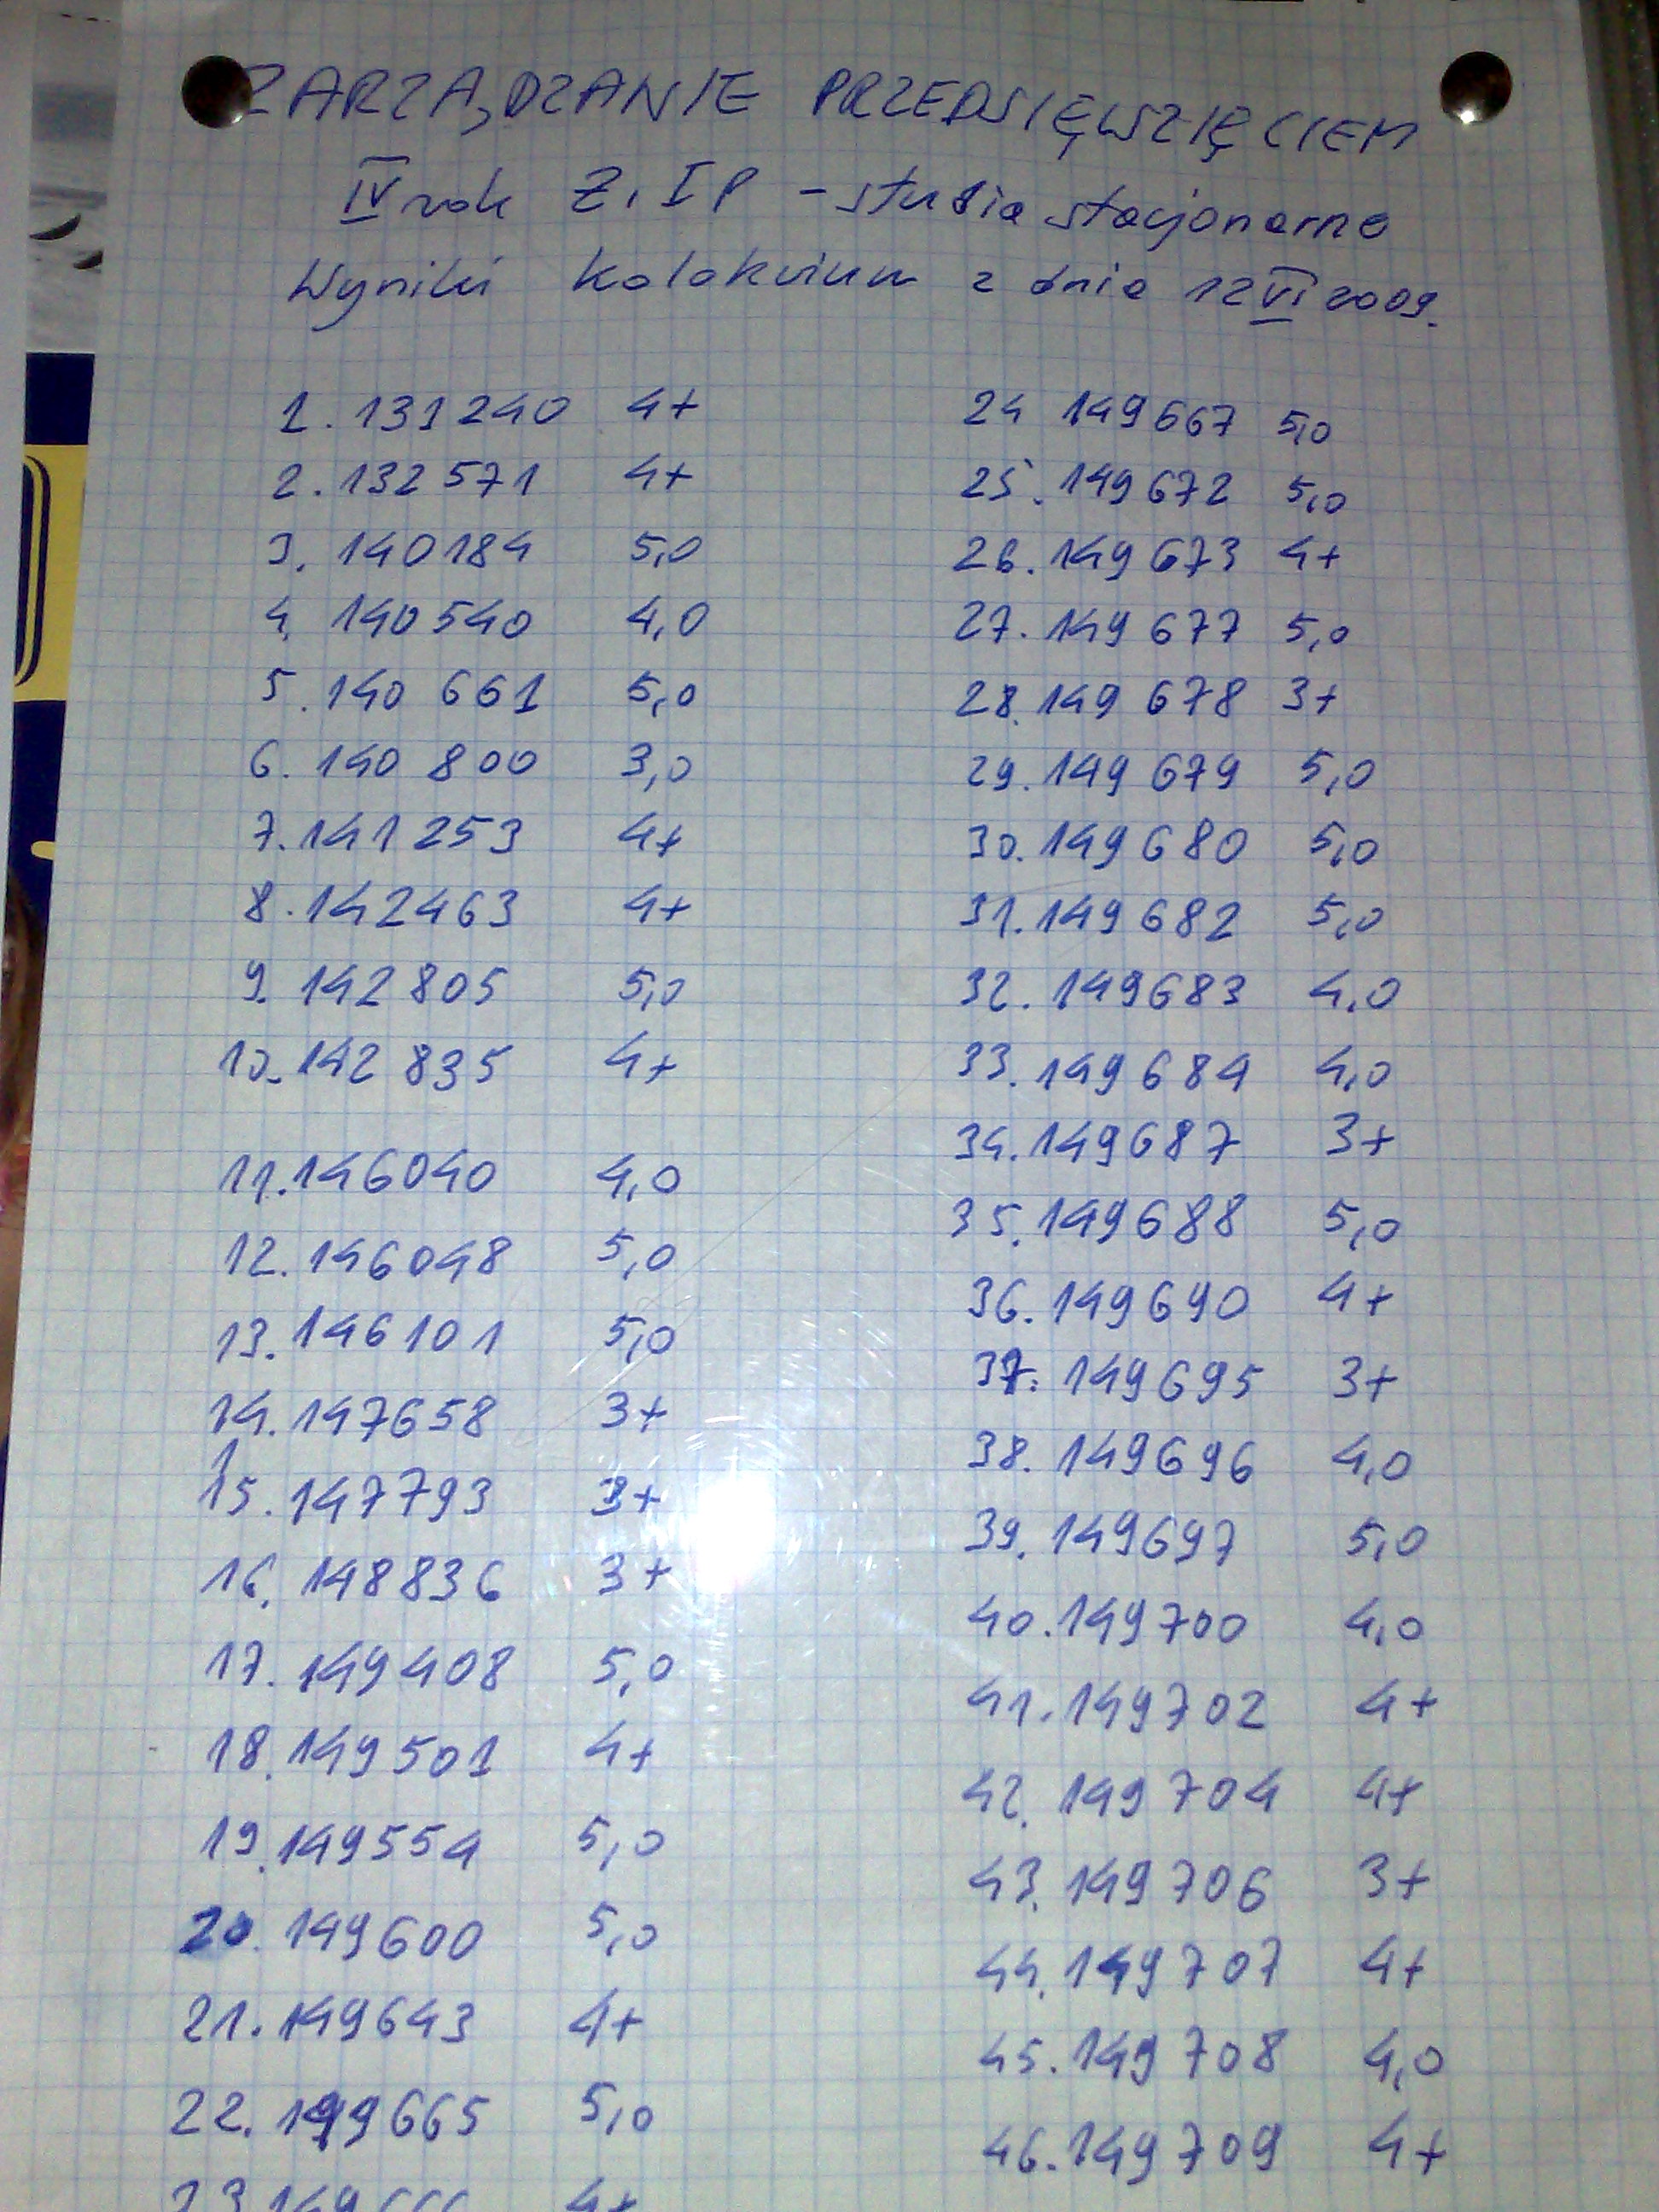 ZARZĄDZANIE PRZEDSIĘWZIĘCIEM
IV rok Z. I P - studia stacjonarne
Wyniki kolokvium z dnia 12 VI 2009.
1. 131240 4+
2. 132571 4+
3. 140184 5,0
4. 140540 4,0
5. 140 661 5,0
6. 140 800 3,0
7. 141253 4+
8. 142463 4+
9. 142805 5,0
10. 142 835 4+
11. 146040 4,0
12. 146048 5,0
13. 146101 5,0
14. 147658 3+
15. 147793 3+
16. 148836 3+
17. 149408 5,0
18. 149501 4+
19. 149554 5,0
20. 149600 5,0
21. 149643 4+
22. 149665 5,0
23. 149666 4+
24 149667 5,0
25. 149672 5,0
26. 149673 4+
27. 149677 5,0
28. 149 678 3+
29. 149 679 5,0
30. 149680 5,0
31. 149682 5,0
32. 149683 4,0
33. 149684 4,0
34. 149687 3+
35. 149688 5,0
36. 149690 4+
37. 149695 3+
38. 149696 4,0
39. 149697 5,0
40. 149700 4,0
41. 149702 4+
42. 149704 4+
43. 149706 3+
44. 149707 4+
45. 149708 4,0
46. 149709 4+